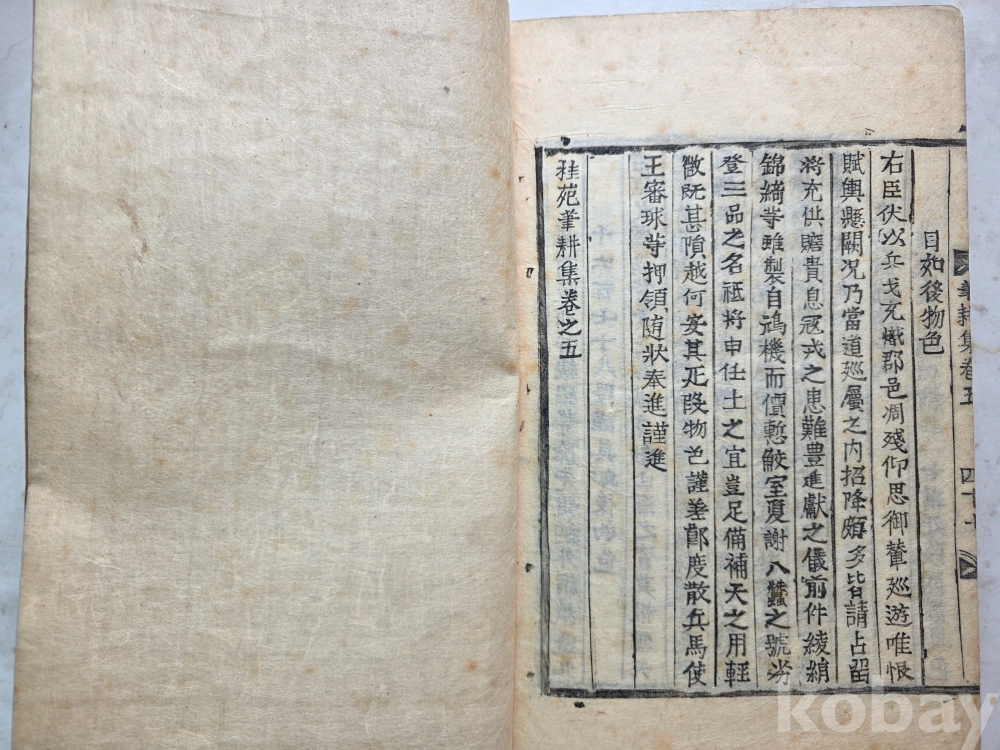 筆耕集卷五
目如後物色
右臣伏以兵戈充熾郡邑凋殘仰思御輦廵遊唯恨
賦輿懸闕况乃當道廵屬之内招降頗多皆請占留
將充供贍貴息冦戎之患難豊進獻之儀前件綾絹
錦綺等雖製自鴻機而價慙鮫室夏謝八蠶之號劣
登三品之名祗將申任土之宜豈足備補天之用輕
微既甚隕越何安其疋段物色謹差節度散兵馬使
王審球等押領随狀奉進謹進
桂苑筆耕集卷之五
kobay